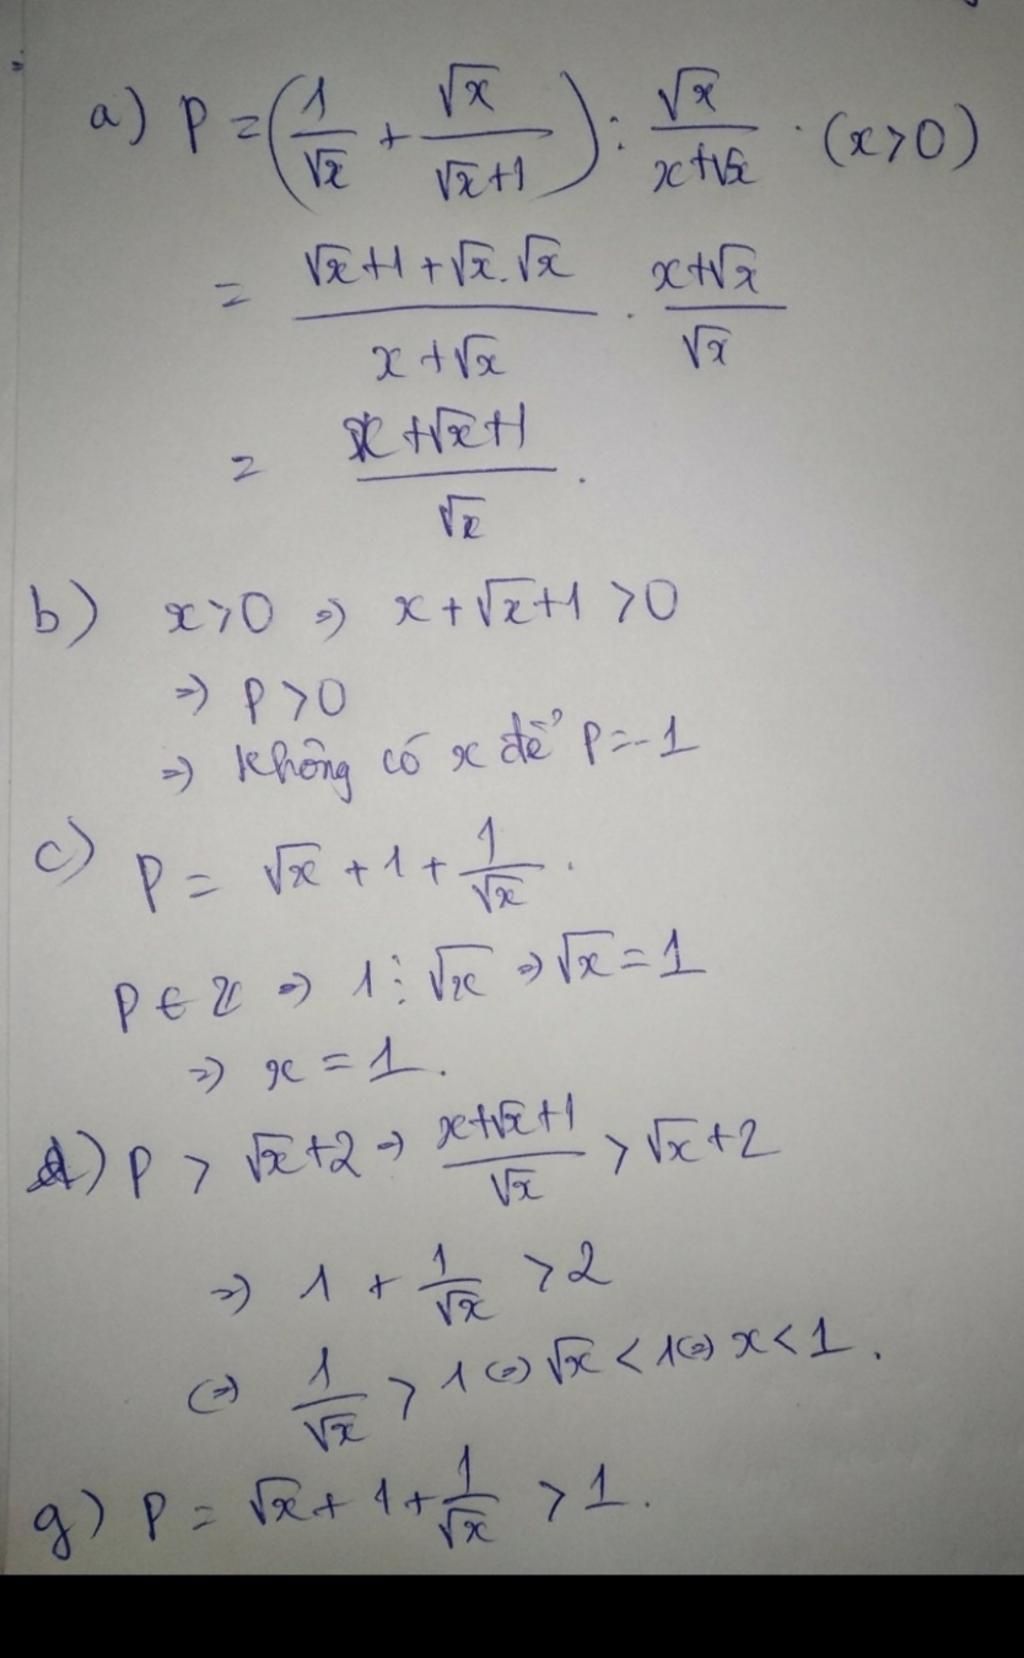 a) P = (1/√x + √x/(√x+1)) : √x/(x+√x) . (x>0)
= (√x+1+√x.√x)/(x+√x) . (x+√x)/√x
= (x+√x+1)/√x .
b) x>0 => x+√x+1 >0
=> P>0
=> Không có x để P=-1
c) P = √x + 1 + 1/√x .
P ∈ Z => 1⋮√x => √x = 1
=> x = 1.
d) P > √x+2 => (x+√x+1)/√x > √x+2
=> 1 + 1/√x > 2
<=> 1/√x > 1 <=> √x < 1 <=> x < 1.
g) P = √x + 1 + 1/√x > 1.